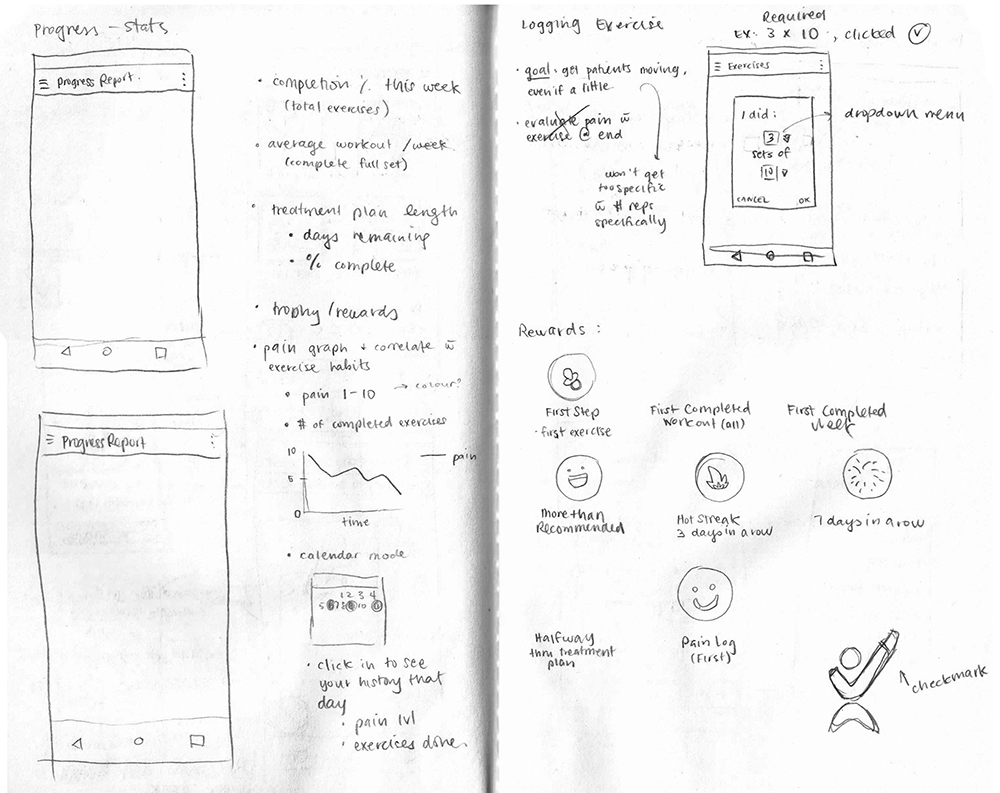 Progress - Stats
≡ Progress Report
• completion % this week
(total exercises)
• average workout / week
(complete full set)
• treatment plan length
• days remaining
• % complete
• trophy / rewards
• pain graph + correlate w̄
exercise habits
• pain 1-10 → colour?
• # of completed exercises
10
5
0
time
— pain
• calendar mode
1 2 3 4
5 6 7 8 10
• click in to see
your history that
day
• pain lvl
• exercises done
≡ Progress Report
Logging Exercise
Required
Ex: 3 x 10, clicked ✓
• goal: get patients moving,
even if a little
• evaluate pain w̄
exercise @ end
won't get
too specific
w̄ # reps
specifically
≡ Exercises
I did:
3
sets of
10
CANCEL OK
dropdown menu
Rewards:
First Step
- first exercise
First Completed
Workout (all)
First Completed
Week
More than
Recommended
Hot Streak
3 days in a row
7 days in a row
Halfway
thru treatment
plan
Pain Log
(First)
checkmark